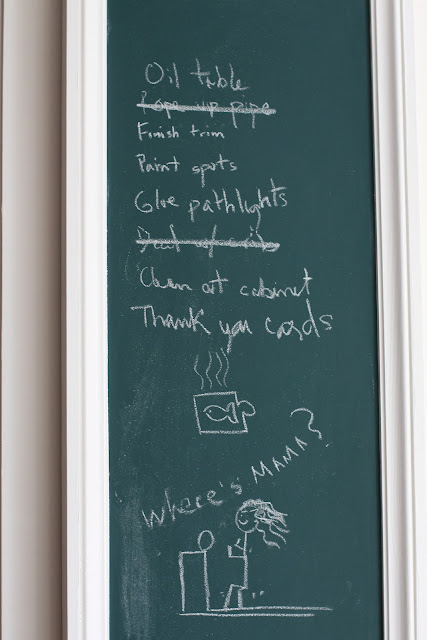 Oil table
Rope up pipe
Finish trim
Paint spots
Glue pathlights
Clean art cabinet
Thank you cards
Where's MAMA?